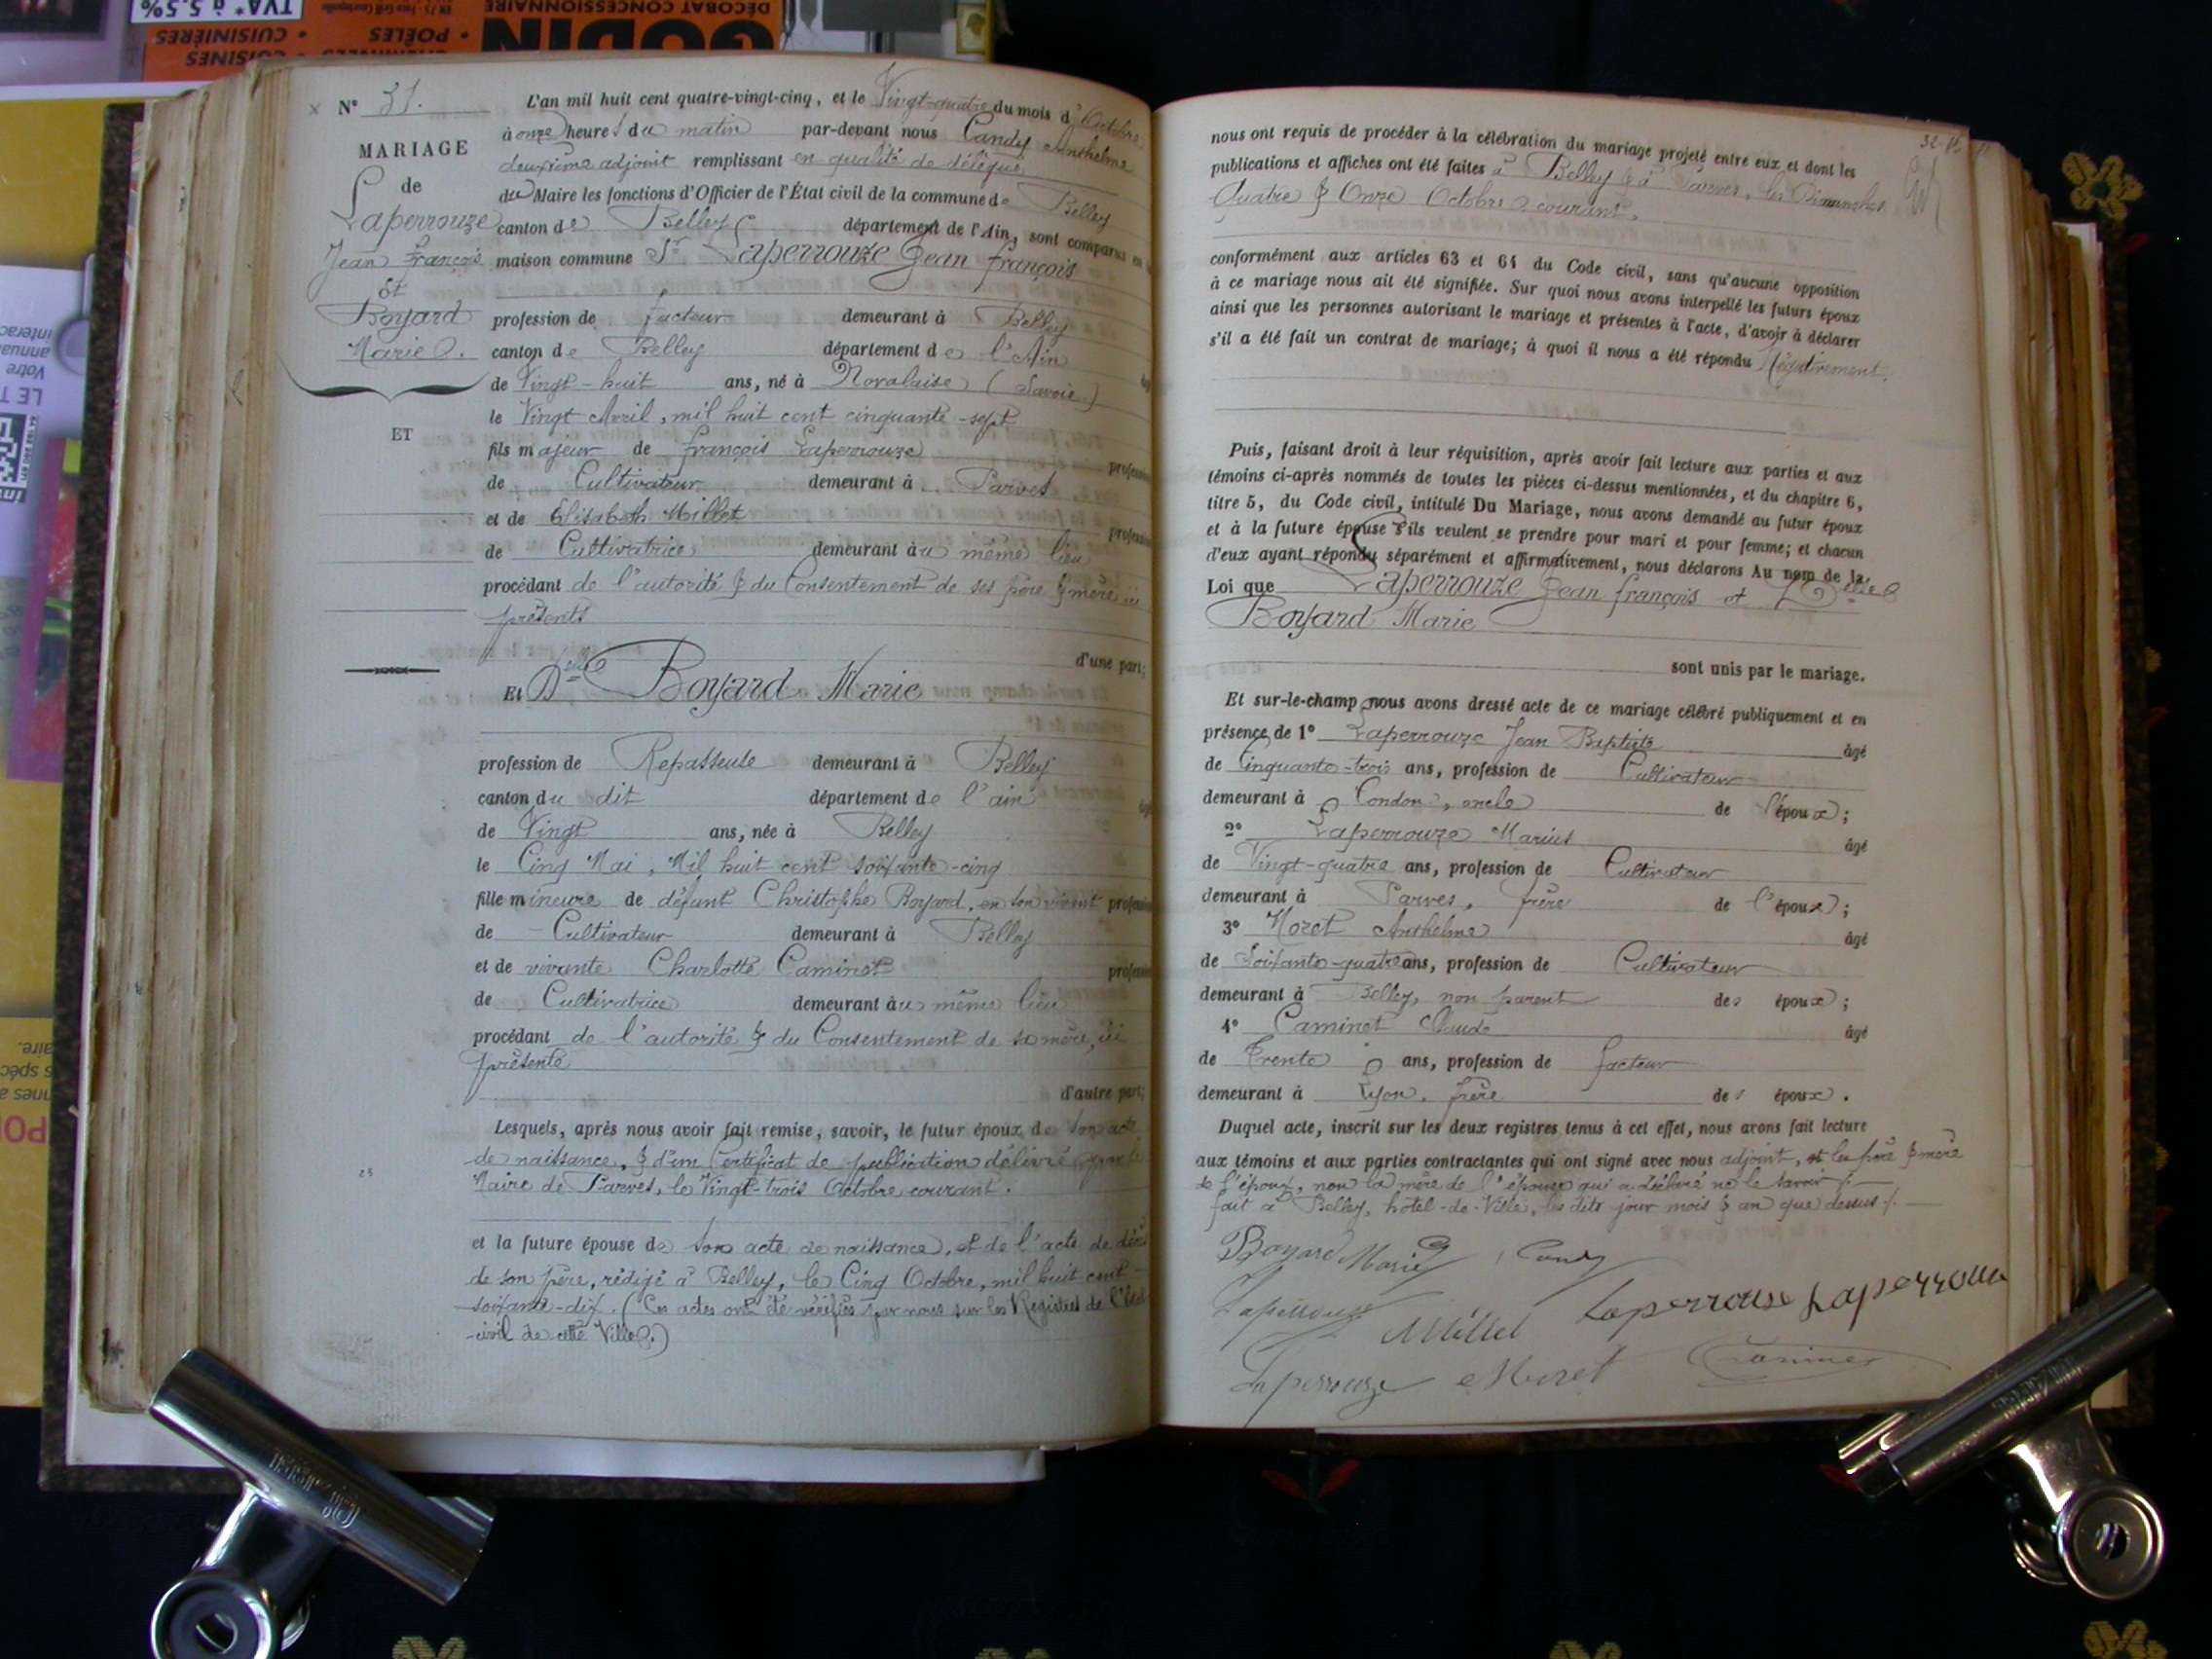 TVA* à 5.5%
DÉCORAT CONCESSIONNAIRE
GODIN
• POÊLES
• CUISINIÈRES
N° 31.
MARIAGE
de
Laperrouze
Jean François
et
Boyard
Marie
ET
L'an mil huit cent quatre-vingt-cinq, et le Vingt-quatre du mois d'Octobre
à onze heures du matin par-devant nous Candy Anthelme
deuxième adjoint remplissant en qualité de délégué
du Maire les fonctions d'Officier de l'État civil de la commune de Belley
canton de Belley département de l'Ain, sont comparus en
maison commune Sr Laperrouze Jean François
profession de facteur demeurant à Belley
canton de Belley département de l'Ain
de Vingt-huit ans, né à Novalaise (Savoie)
le Vingt Avril, mil huit cent cinquante-sept
fils majeur de François Laperrouze
de Cultivateur demeurant à Parves
et de Elisabeth Millet
de Cultivatrice demeurant au même lieu
procédant de l'autorité & du Consentement de ses père & mère ici
présents
d'une part;
Et Dlle Boyard Marie
profession de Repasseuse demeurant à Belley
canton du dit département de l'ain
de Vingt ans, née à Belley
le Cinq Mai, Mil huit cent soixante-cinq
fille mineure de défunt Christophe Boyard, en son vivant
de Cultivateur demeurant à Belley
et de vivante Charlotte Caminet
de Cultivatrice demeurant au même lieu
procédant de l'autorité & du Consentement de sa mère, ici
présente
d'autre part;
Lesquels, après nous avoir fait remise, savoir, le futur époux de son acte
de naissance, & d'un Certificat de publication délivré par le
Maire de Parves, le Vingt-trois Octobre courant.
et la future épouse de son acte de naissance, et de l'acte de décès
de son père, rédigé à Belley, le Cinq Octobre, mil huit cent
soixante-dix. (Ces actes ont été vérifiés par nous sur les Registres de l'État
-civil de cette Ville.)
nous ont requis de procéder à la célébration du mariage projeté entre eux et dont les
publications et affiches ont été faites à Belley & à Parves, les Dimanches
Quatre & Onze Octobre courant.
conformément aux articles 63 et 64 du Code civil, sans qu'aucune opposition
à ce mariage nous ait été signifiée. Sur quoi nous avons interpellé les futurs époux
ainsi que les personnes autorisant le mariage et présentes à l'acte, d'avoir à déclarer
s'il a été fait un contrat de mariage; à quoi il nous a été répondu Négativement.
Puis, faisant droit à leur réquisition, après avoir fait lecture aux parties et aux
témoins ci-après nommés de toutes les pièces ci-dessus mentionnées, et du chapitre 6,
titre 5, du Code civil, intitulé Du Mariage, nous avons demandé au futur époux
et à la future épouse s'ils veulent se prendre pour mari et pour femme; et chacun
d'eux ayant répondu séparément et affirmativement, nous déclarons Au nom de la
Loi que Laperrouze Jean François et Dlle
Boyard Marie
sont unis par le mariage.
Et sur-le-champ nous avons dressé acte de ce mariage célébré publiquement et en
présence de 1° Laperrouze Jean Baptiste âgé
de Cinquante-trois ans, profession de Cultivateur
demeurant à Condon, oncle de l'époux;
2° Laperrouze Marius âgé
de Vingt-quatre ans, profession de Cultivateur
demeurant à Parves, frère de l'époux;
3° Moret Anthelme âgé
de Soixante-quatre ans, profession de Cultivateur
demeurant à Belley, non parent des époux;
4° Caminet Claude âgé
de Trente ans, profession de facteur
demeurant à Lyon, frère des époux.
Duquel acte, inscrit sur les deux registres tenus à cet effet, nous avons fait lecture
aux témoins et aux parties contractantes qui ont signé avec nous adjoint, et les père & mère
de l'époux, non la mère de l'épouse qui a déclaré ne le savoir
fait à Belley, hôtel-de-Ville, les dits jour mois & an que dessus
Boyard Marie Candy
Laperrouze Millet Laperrouse Laperrouze
Laperrouze Moret Caminet